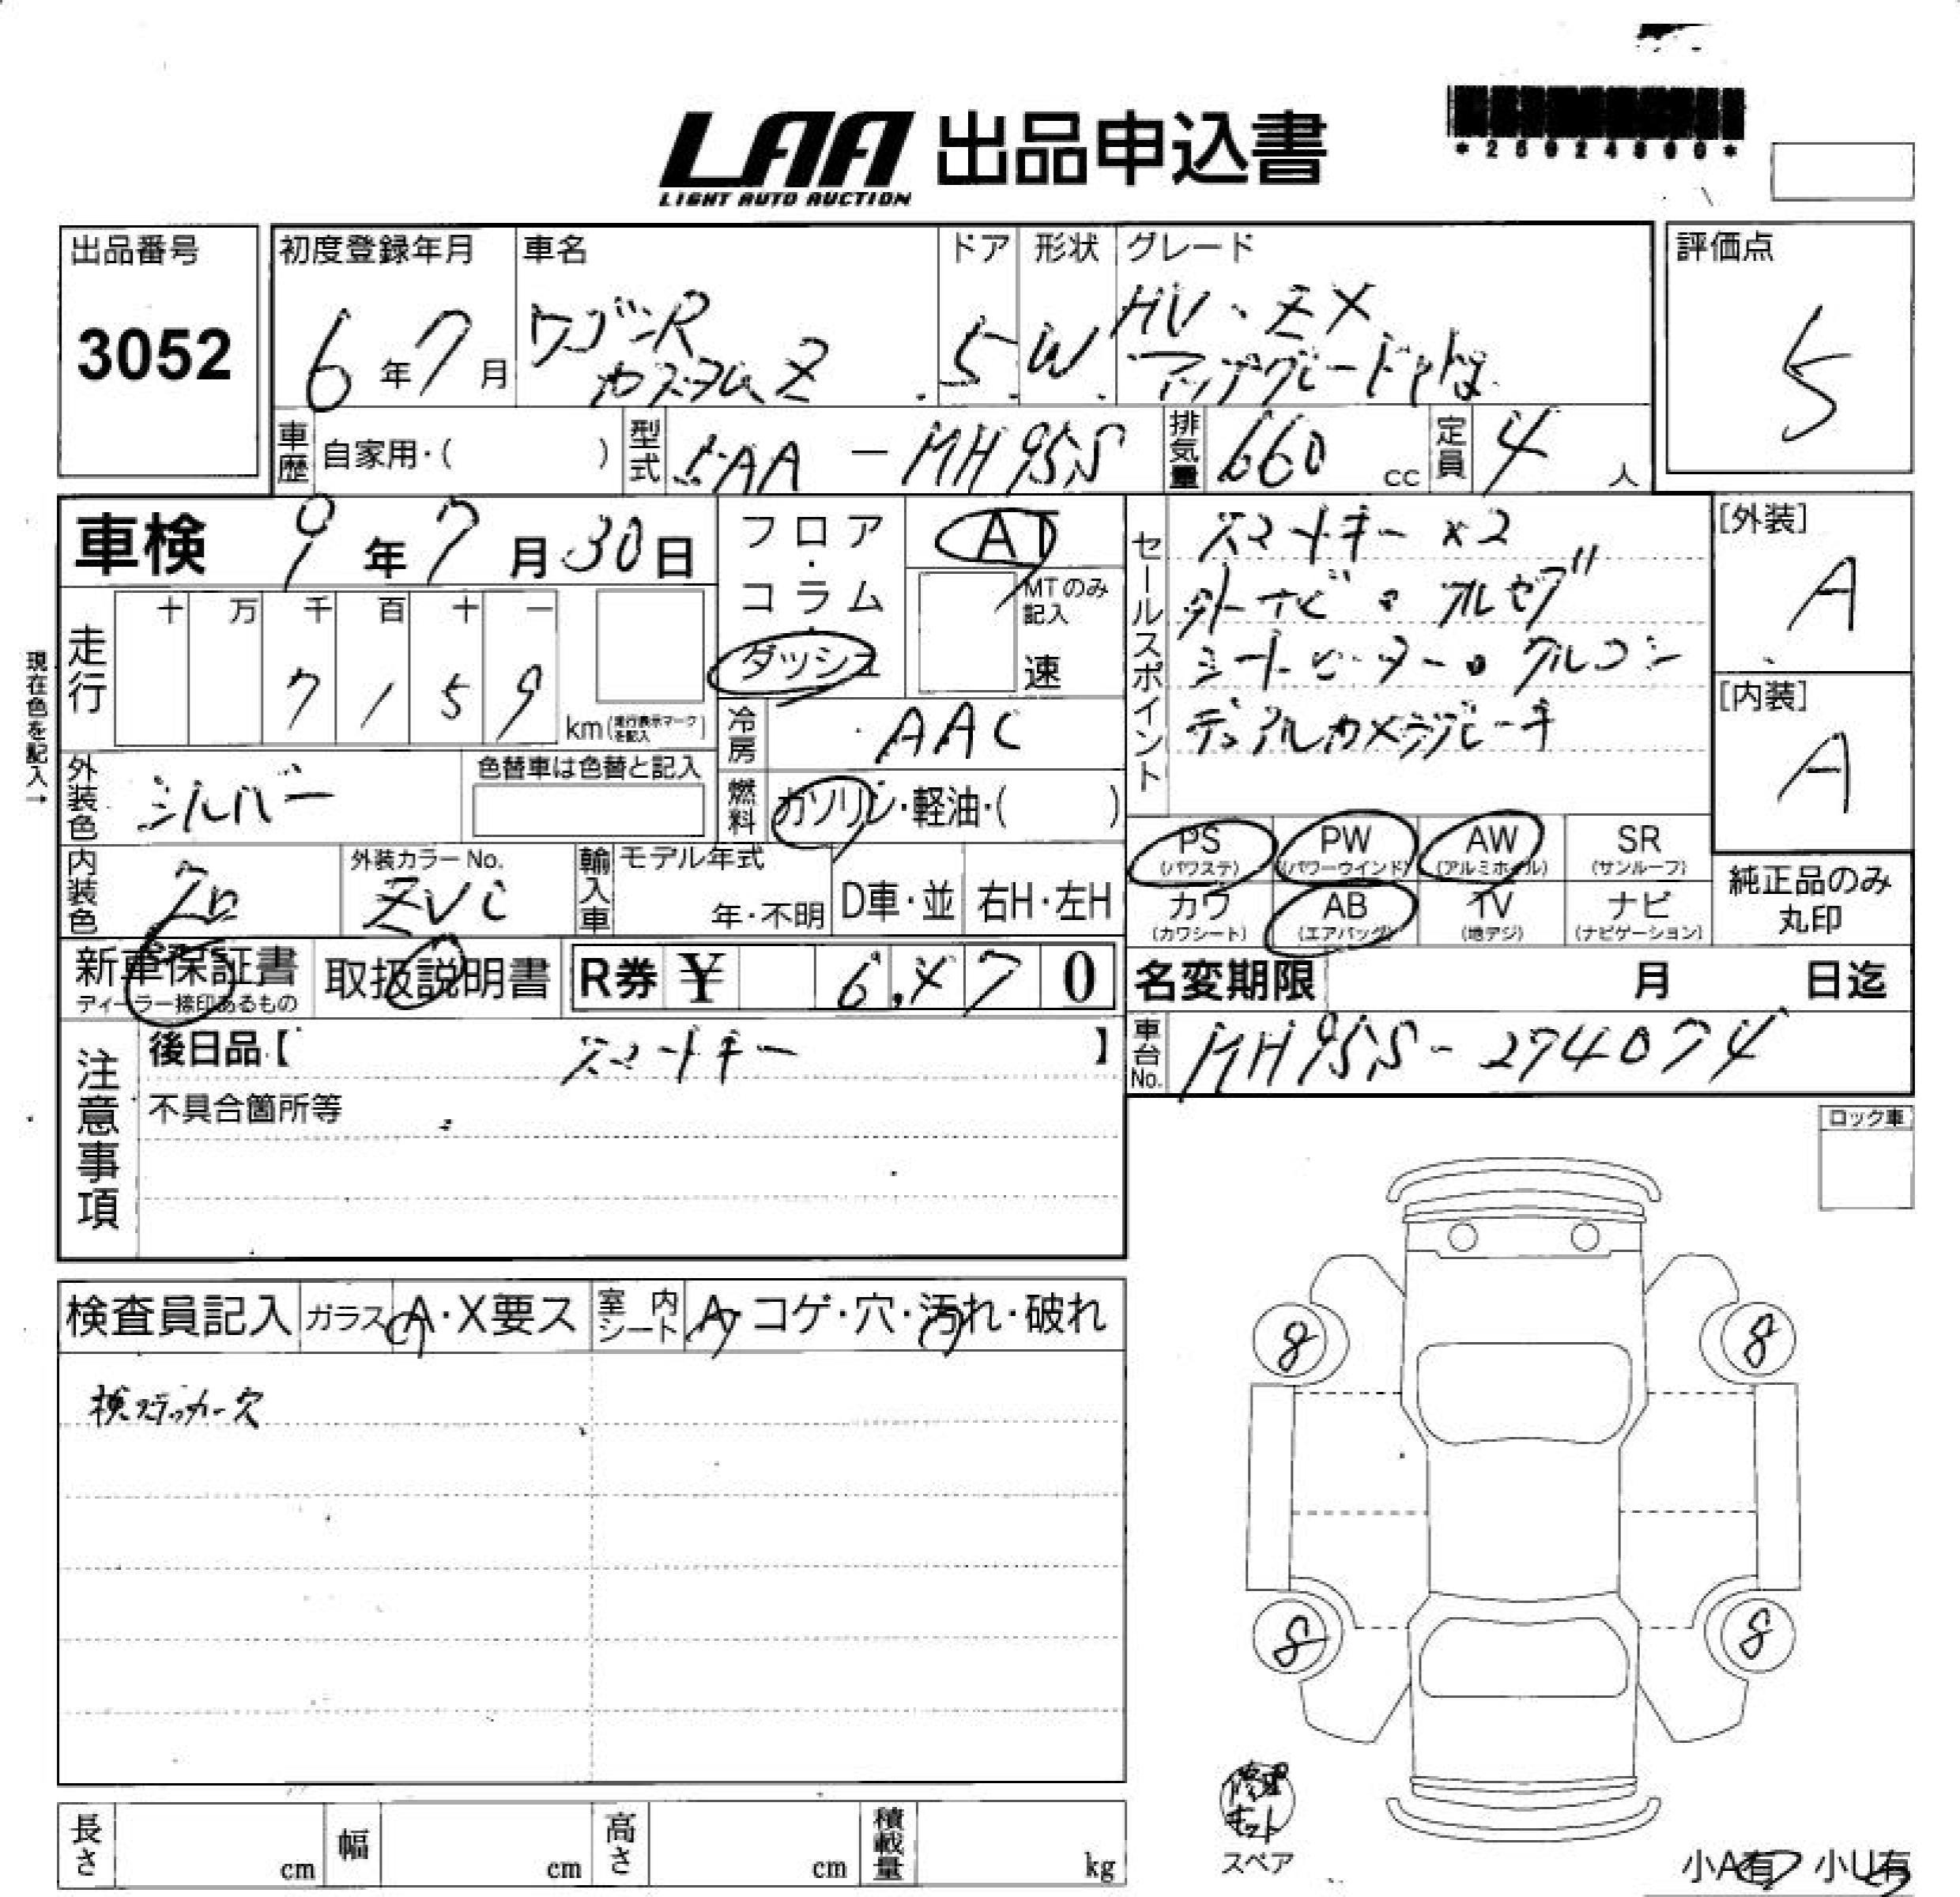 LAA 出品申込書
LIGHT AUTO AUCTION
出品番号
3052
初度登録年月
6年7月
車名
ワゴンR
カスタムZ
ドア
5
形状
W
グレード
HV・ZX
アップグレードPkg
評価点
5
車歴 自家用・( )
型式 5AA-MH95S
排気量 660 cc
定員 4人
車検 9年7月30日
フロア・コラム・ダッシュ
AT
MTのみ記入
速
セールスポイント
スマートキー x2
外ナビ・フルセグ
シートヒーター・クルコン
デュアルカメラブレーキ
[外装]
A
[内装]
A
現在色を記入→
走行
十 万 千 百 十 一
7 1 5 9
km(走行表示マークを記入)
冷房 AAC
燃料 ガソリン・軽油・( )
外装色 シルバー
色替車は色替と記入
内装色
外装カラーNo.
ZVC
輸入車
モデル年式
年・不明
D車・並
右H・左H
PS (パワステ)
PW (パワーウインド)
AW (アルミホイール)
SR (サンルーフ)
カワ (カワシート)
AB (エアバッグ)
TV (地デジ)
ナビ (ナビゲーション)
純正品のみ丸印
新車保証書
ディーラー捺印あるもの
取扱説明書
R券 ¥ 6,×70
名変期限 月 日迄
車台No. MH95S-274074
注意事項
後日品【 スマートキー 】
不具合箇所等
ロック車
検査員記入
ガラス A・X要ス
室内シート A・コゲ・穴・汚れ・破れ
検ステッカー穴
8
8
8
8
修理キット
スペア
長さ cm
幅 cm
高さ cm
積載量 kg
小A有 小U有